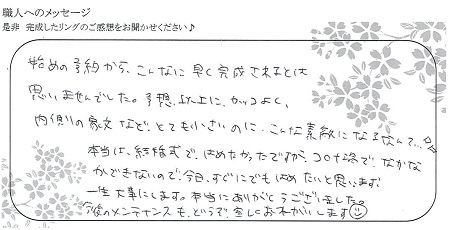 職人へのメッセージ
是非 完成したリングのご感想をお聞かせください♪
始めの予約から、こんなに早く完成されるとは
思いませんでした。予想以上に、かっこよく、
内側の家文など、とても小さいのに、こんな素敵になるなんて…
本当は、結婚式で、はめたかったですが、コロナ禍で、なかなか
ができないので、今日、すぐにでもはめたいと思います。
一生大事にします。本当にありがとうございました。
今後のメンテナンスも、どうぞ、宜しくお願いします